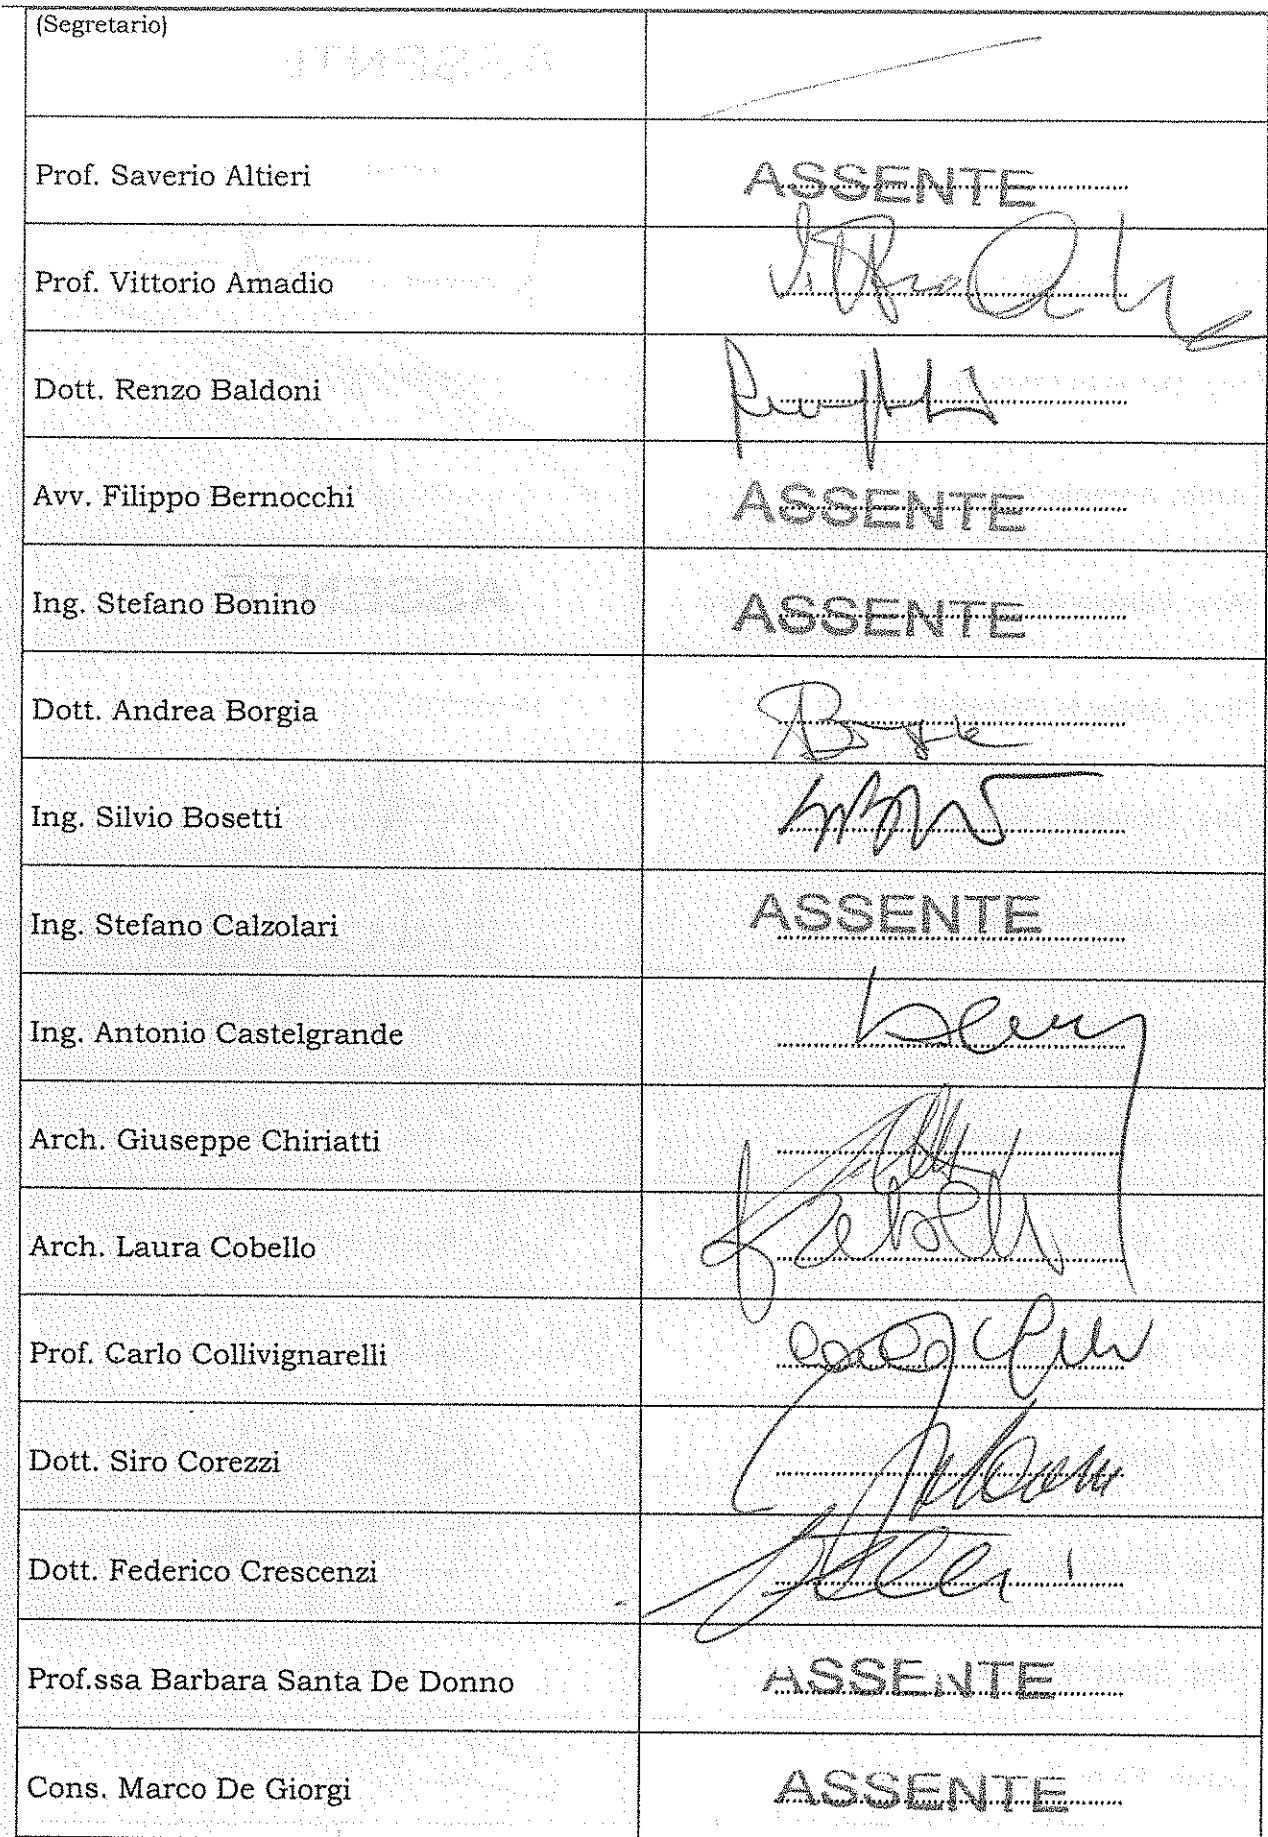 (Segretario)
Prof. Saverio Altieri ASSENTE
Prof. Vittorio Amadio
Dott. Renzo Baldoni
Avv. Filippo Bernocchi ASSENTE
Ing. Stefano Bonino ASSENTE
Dott. Andrea Borgia
Ing. Silvio Bosetti
Ing. Stefano Calzolari ASSENTE
Ing. Antonio Castelgrande
Arch. Giuseppe Chiriatti
Arch. Laura Cobello
Prof. Carlo Collivignarelli
Dott. Siro Corezzi
Dott. Federico Crescenzi
Prof.ssa Barbara Santa De Donno ASSENTE
Cons. Marco De Giorgi ASSENTE